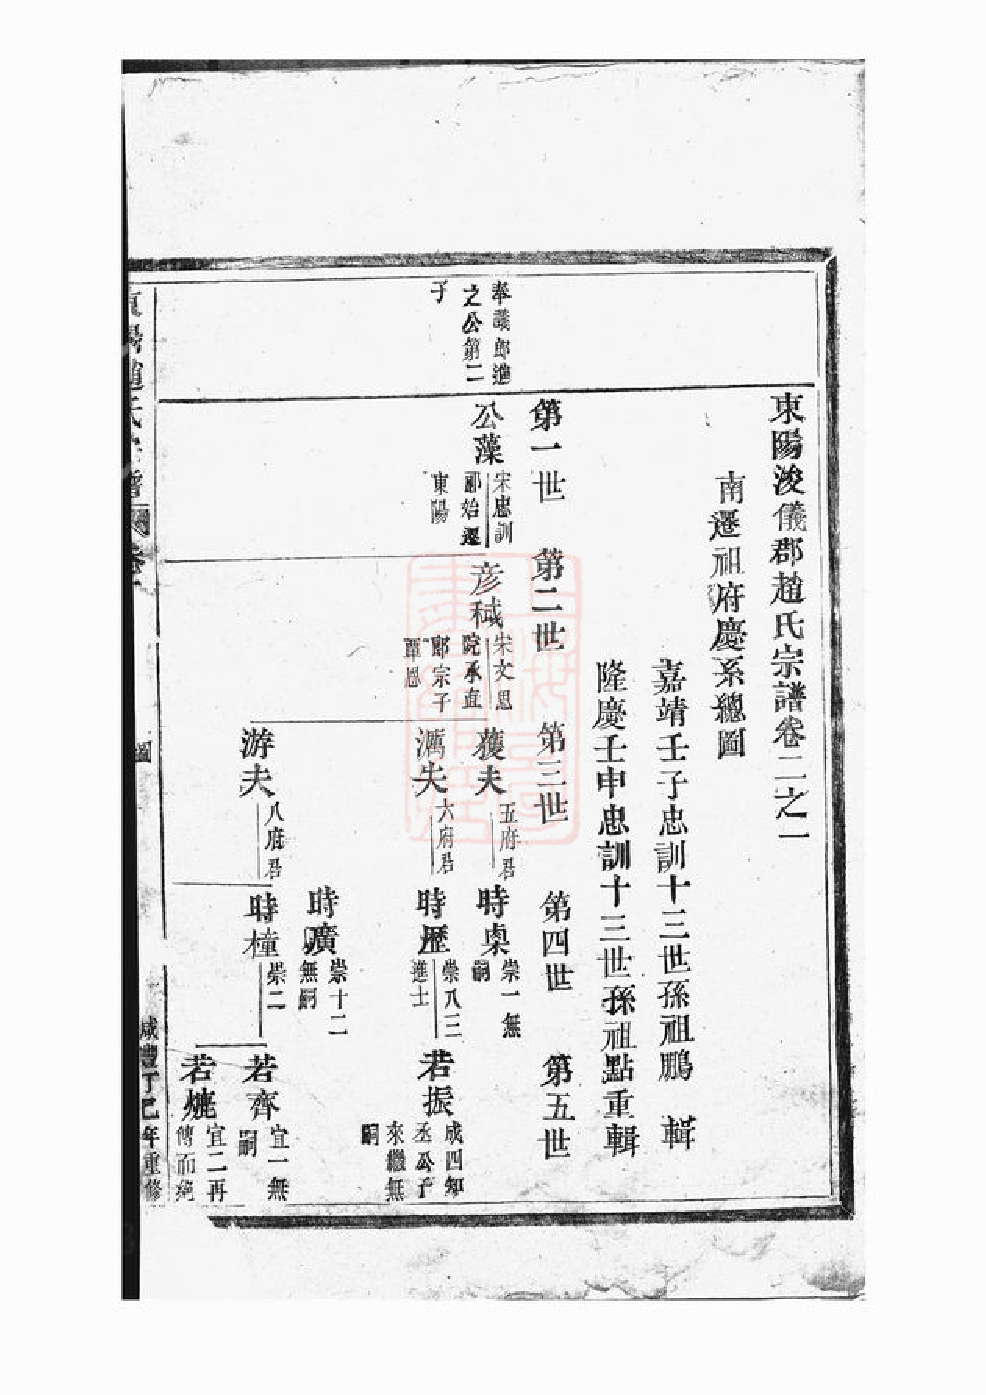 東陽浚儀郡趙氏宗譜卷二之一
南遷祖府慶系總圖
嘉靖壬子忠訓十三世孫祖鵬 輯
隆慶壬申忠訓十三世孫祖點重輯
第一世 第二世 第三世 第四世 第五世
奉議郎進
之公第二
子
公藻
宋忠訓
郎始遷
東陽
彦棫
宋文思
院承直
郎宗子
覃恩
夫
五府君
時㮚
崇一無
嗣
夫
六府君
時歷
崇八三
進士
若振
成四知
丞公子
來繼無
嗣
時㬒
崇十二
無嗣
游夫
八府君
時橦
崇二
若齊
宜一無
嗣
若
宜二再
傳而絕
東陽趙氏宗譜
圖
咸豐丁巳年重修